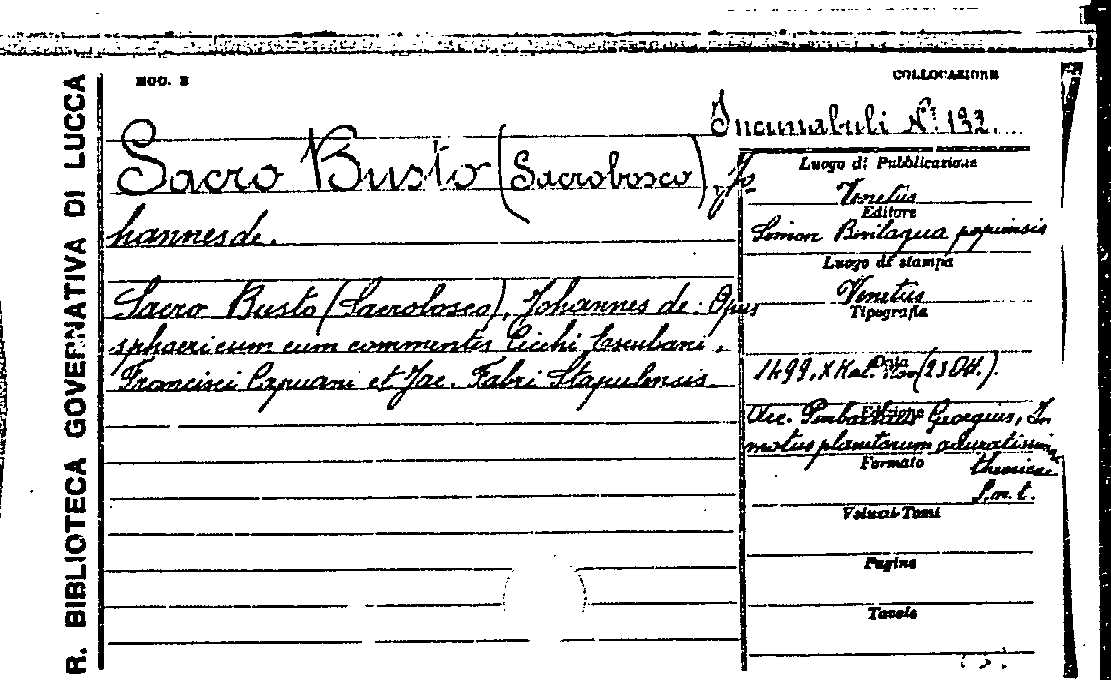 MOD. E
COLLOCAZIONE
Incunabuli N.º 132.
R. BIBLIOTECA GOVERNATIVA DI LUCCA
Sacro Busto (Sacrobosco), Jo-
hannes de.
Sacro Busto (Sacrobosco), Johannes de. Opus
sphaericum cum commentis Cicchi Esculani,
Francisci Capuani et Jac. Fabri Stapulensis
Luogo di Pubblicazione
Venetiis
Editore
Simon Bevilaqua papiensis
Luogo di stampa
Venetiis
Tipografia
Data
1499, X Kal. Nov (23 Ott.).
Edizione
Georgius, In
motus planetarum accuratissime
Formato
theoricae
Volumi-Tomi
Pagine
Tavole